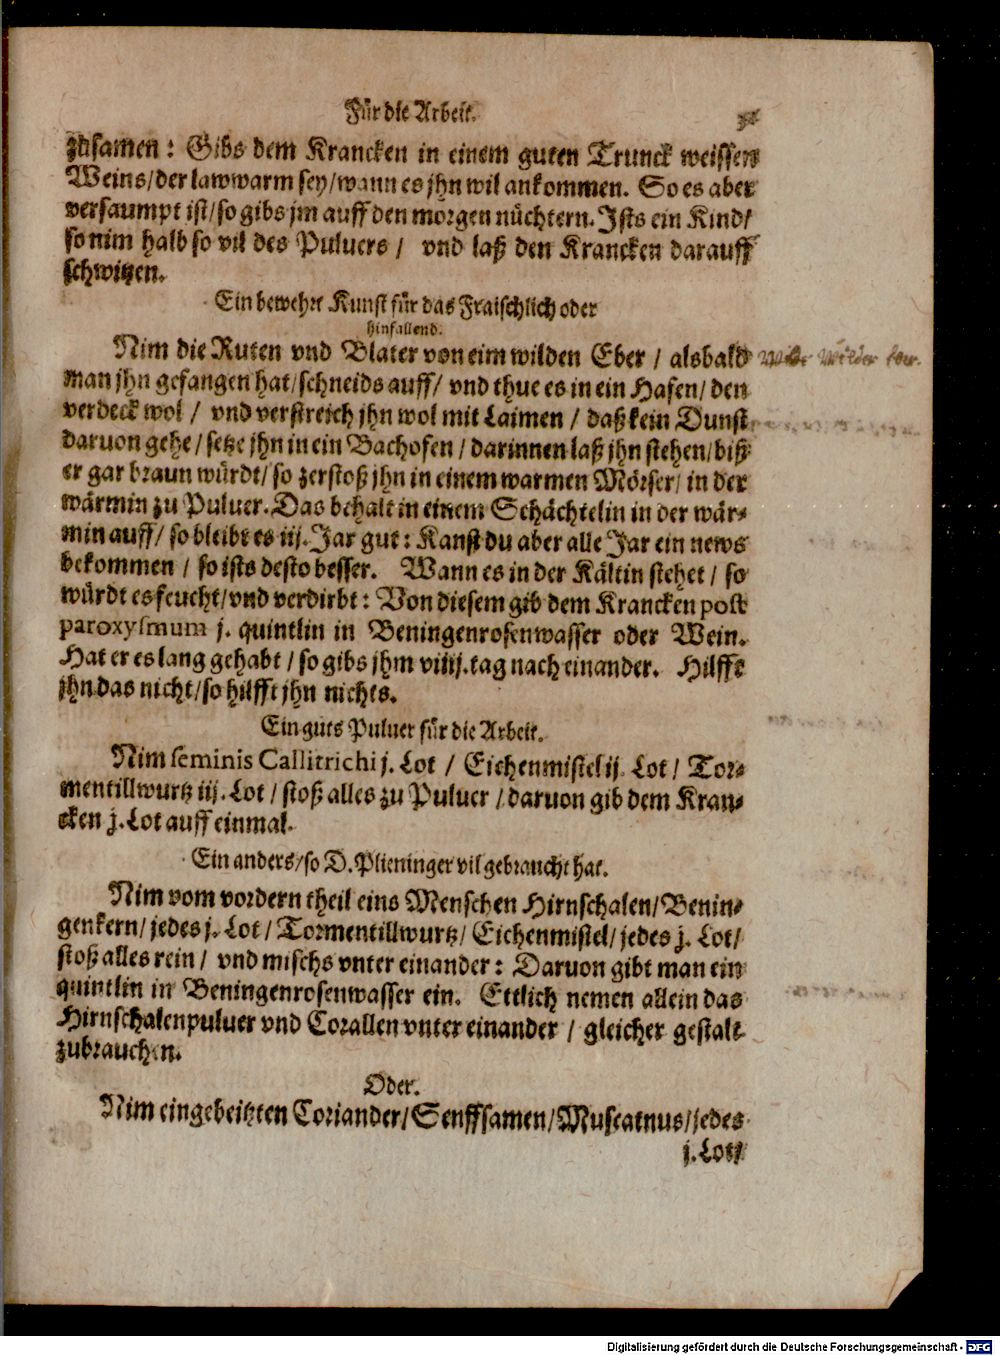 Für die Arbeit.
zůsamen: Gibs dem Krancken in einem guten Trunck weissen
Weins/der lawwarm sey/wann es jhn wil ankommen. So es aber
versaumpt ist/so gibs jm auff den morgen nüchtern. Ists ein Kind/
so nim halb so vil des Puluers / vnd laß den Krancken darauff
schwitzen.
Ein bewehrt Kunst für das Fraischlich oder
hinfallend.
Nim die Ruten vnd Blater von eim wilden Eber / alsbald
man jhn gefangen hat/schneids auff/ vnd thue es in ein Hafen/ den
verdeck wol / vnd verstreich jhn wol mit Laimen / daß kein Dunst
daruon gehe/setze jhn in ein Bachofen/darinnen laß jhn stehen/biß
er gar braun würdt/so zerstoß jhn in einem warmen Mörser/ in der
wärmin zu Puluer. Das behalt in einem Schächtelin in der wär-
min auff/ so bleibt es iij. Jar gut: Kanst du aber alle Jar ein news
bekommen / so ists desto besser. Wann es in der Kältin stehet / so
würdt es feucht/vnd verdirbt: Von diesem gib dem Krancken post
paroxysmum j. quintlin in Beningenrosenwasser oder Wein.
Hat er es lang gehabt / so gibs jhm viiij. tag nach einander. Hilfft
jhn das nicht/so hilfft jhn nichts.
Ein guts Puluer für die Arbeit.
Nim seminis Callitrichi j. Lot / Eichenmistel ij. Lot / Tor-
mentillwurtz iij. Lot / stoß alles zu Puluer / daruon gib dem Kran-
cken j. Lot auff einmal.
Ein anders/so D. Plieninger vil gebraucht hat.
Nim vom vordern theil eins Menschen Hirnschalen/Benin-
genkern/jedes j. Lot/Tormentillwurtz/Eichenmistel/jedes j. Lot/
stoß alles rein / vnd mischs vnter einander: Daruon gibt man ein
quintlin in Beningenrosenwasser ein. Ettlich nemen allein das
Hirnschalenpuluer vnd Corallen vnter einander / gleicher gestalt
zubrauchen.
Oder.
Nim eingebeitzten Coriander/Senffsamen/Muscatnus/jedes
j. Lot/
Digitalisierung gefördert durch die Deutsche Forschungsgemeinschaft - DFG